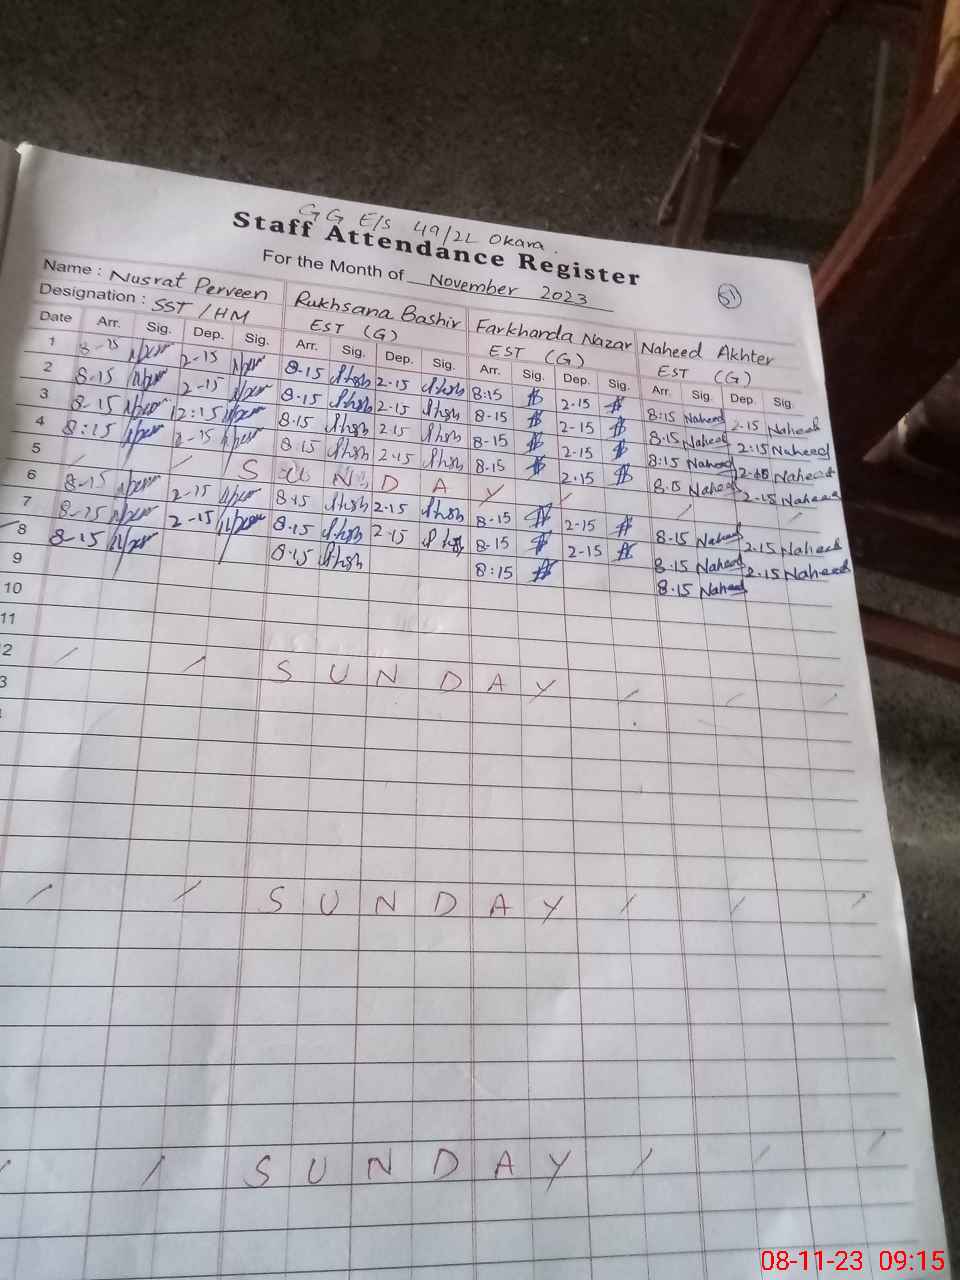 GG E/S 49/2L Okara.
Staff Attendance Register
For the Month of November 2023
51
Name : Nusrat Perveen Rukhsana Bashir Farkhanda Nazar Naheed Akhter
Designation : SST / HM EST (G) EST (G) EST (G)
Date Arr. Sig. Dep. Sig. Arr. Sig. Dep. Sig. Arr. Sig. Dep. Sig. Arr. Sig. Dep. Sig.
1 8-15 2-15 8-15 2-15 8:15 2-15 8:15 Naheed 2-15 Naheed
2 8-15 2-15 8-15 2-15 8-15 2-15 8-15 Naheed 2:15 Naheed
3 8-15 12:15 8-15 2-15 8-15 2-15 8:15 Naheed Naheed
4 8:15 2-15 8.15 2-15 8-15 2.15 8.15 Naheed 2-15 Naheed
5 / / S U N D A Y / / /
6 8-15 2-15 8.15 2-15 8-15 2-15 8.15 Naheed 2.15 Naheed
7 8-15 2-15 8.15 2-15 8-15 2-15 8.15 Naheed 2.15 Naheed
8 8-15 8.15 8:15 8.15 Naheed
9
10
11
2 / / S U N D A Y / / /
3
/ / S U N D A Y / / /
/ / S U N D A Y / / /
08-11-23 09:15